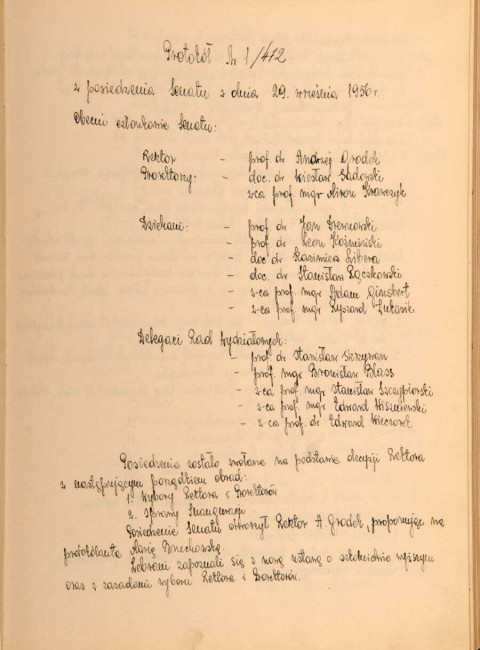 Protokół Nr 1/412
z posiedzenia Senatu z dnia 29. września 1956 r.
Obecni członkowie Senatu:
Rektor – prof. dr Andrzej Grodek
Prorektorzy: – doc. dr Wiesław Sadowski
z-ca prof. mgr Miron Krawczyk
Dziekani: – prof. dr Jan
– prof. dr Leon Koźmiński
– doc. dr Kazimiera Libera
– doc. dr Stanisław Rączkowski
– z-ca prof. mgr Adam Ginsbert
– z-ca prof. mgr Ryszard Łukasik
Delegaci Rad Wydziałowych:
– prof. dr Stanisław Skrzywan
– prof. mgr Bronisław Blass
– z-ca prof. mgr Stanisław Szczypiorski
– z-ca prof. mgr Edward Wiszniewski
– z-ca prof. dr Edward Wieczorek
Posiedzenie zostało zwołane na podstawie decyzji Rektora
z następującym porządkiem obrad:
1. Wybory Rektora i Prorektorów
2. Sprawy Inauguracji
Posiedzenie Senatu otworzył Rektor A. Grodek, proponując na
protokólanta
Zebrani zapoznali się z nową ustawą o szkolnictwie wyższym
oraz z zasadami wyboru Rektora i Prorektorów.